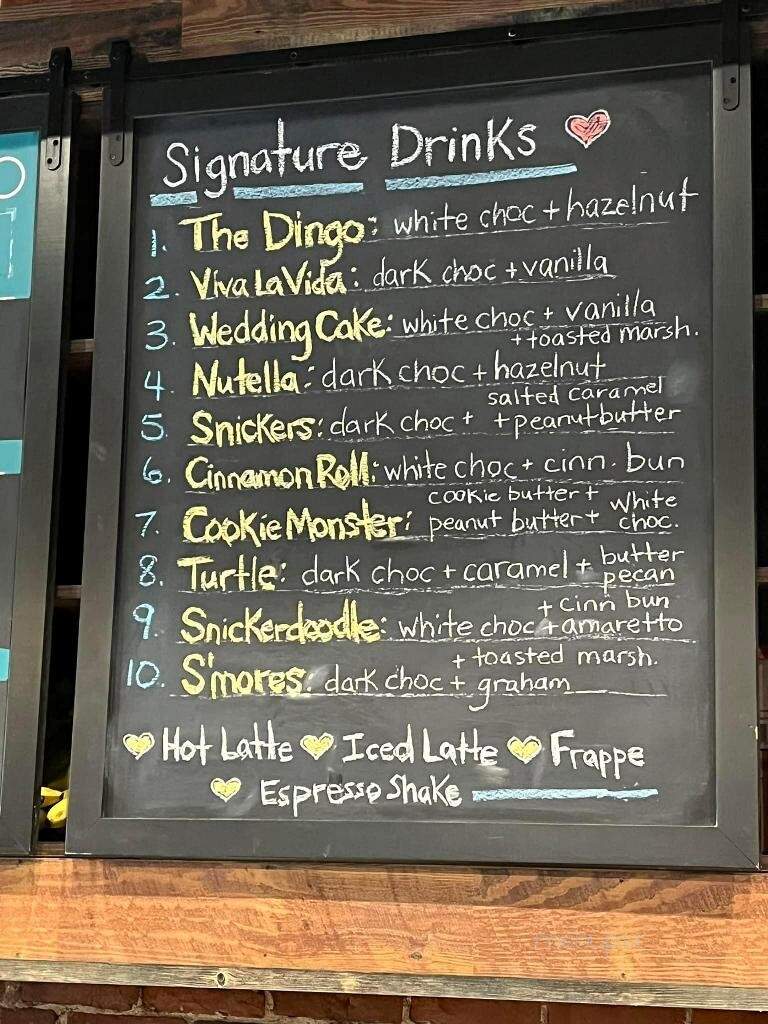 Signature Drinks
1. The Dingo: white choc + hazelnut
2. Viva La Vida: dark choc + vanilla
3. Wedding Cake: white choc + vanilla
+ toasted marsh.
4. Nutella: dark choc + hazelnut
salted caramel
5. Snickers: dark choc + + peanutbutter
6. Cinnamon Roll: white choc + cinn. bun
cookie butter + white
7. Cookie Monster: peanut butter + choc.
8. Turtle: dark choc + caramel + butter
pecan
+ cinn bun
9. Snickerdoodle: white choc + amaretto
+ toasted marsh.
10. S'mores: dark choc + graham
Hot Latte Iced Latte Frappe
Espresso Shake